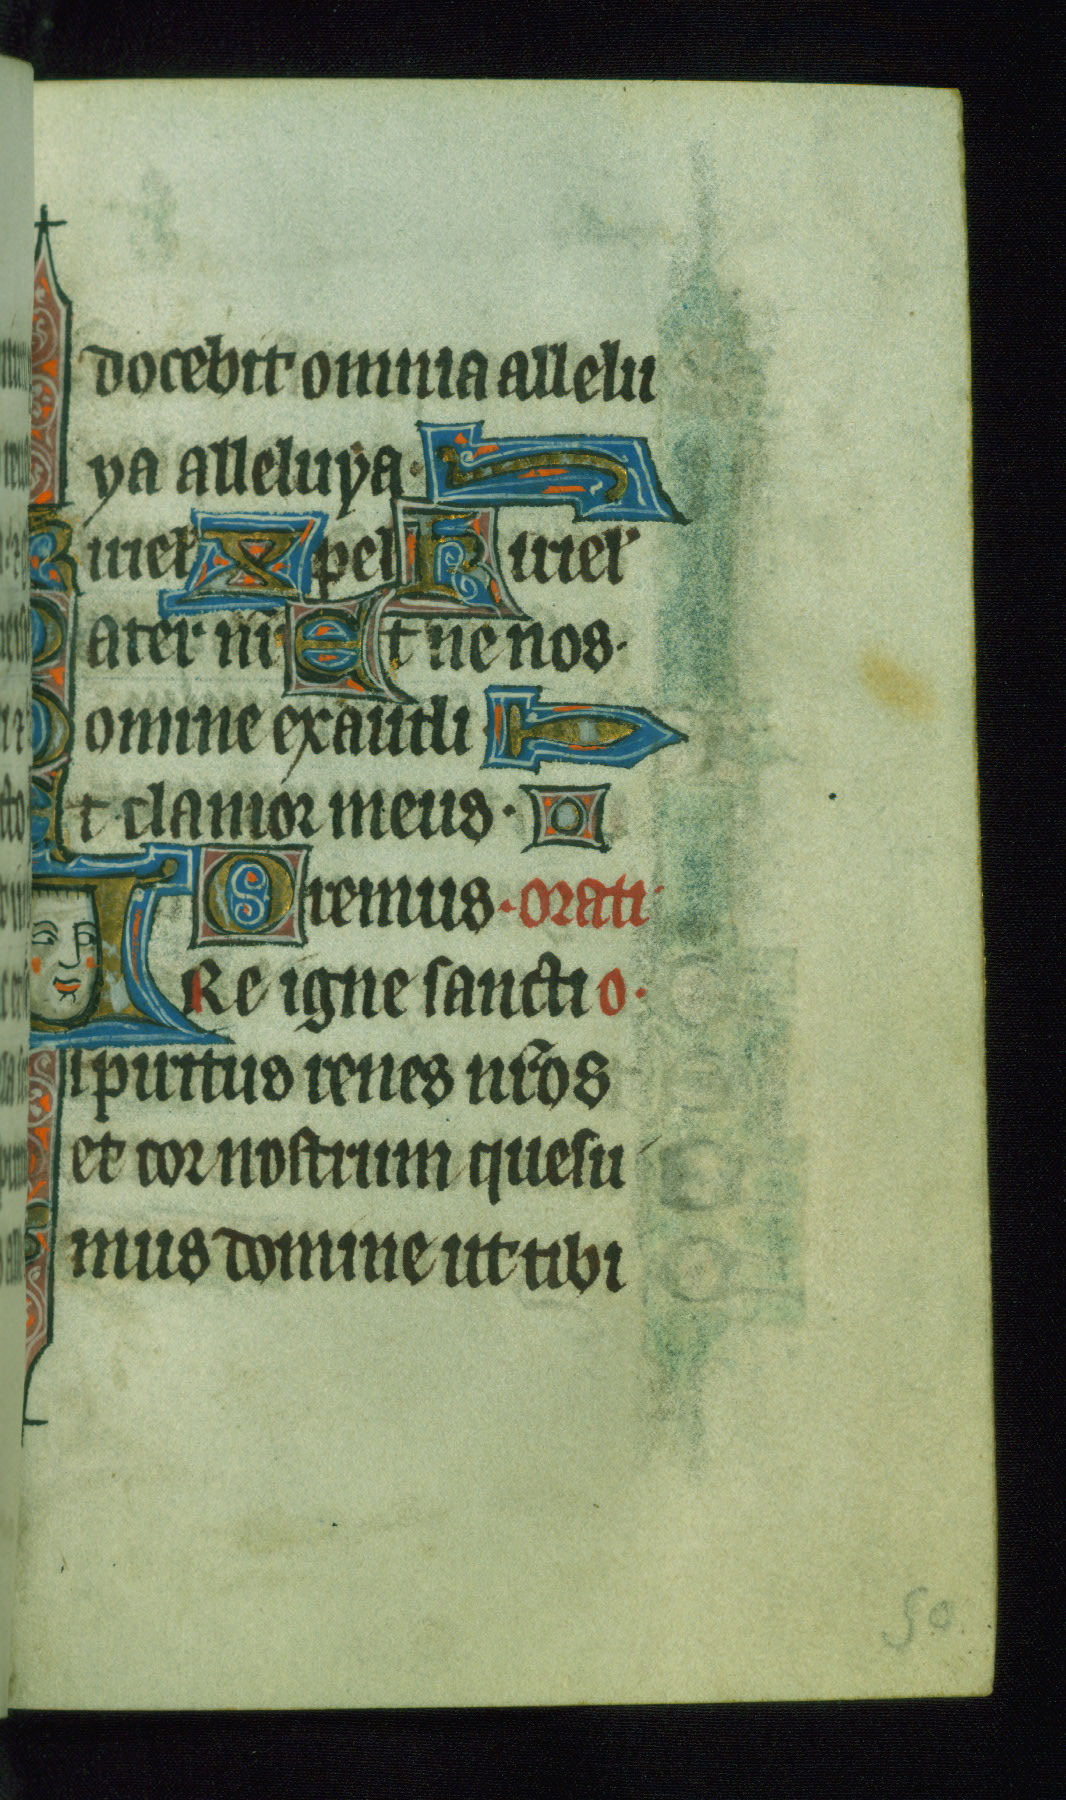 docebit omnia allelu
ya alleluya·
Kiriel' Xpel Kiriel'
Pater nr Et ne nos·
Domine exaudi
Et clamor meus·
Oremus·orati
URe igne sancti o·
spiritus renes nr̃os
et cor nostrum quesu
mus domine ut tibi
50